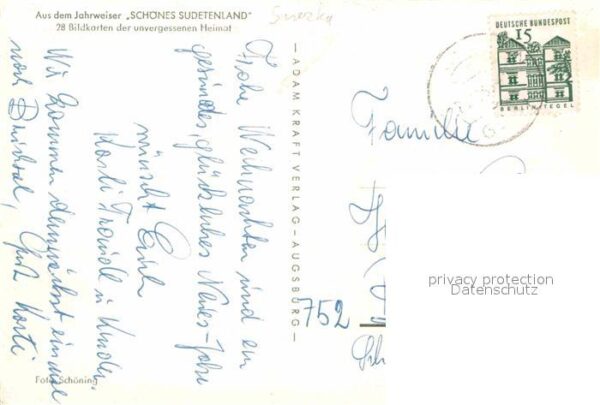 Aus dem Jahrweiser „SCHÖNES SUDETENLAND"
28 Bildkarten der unvergessenen Heimat
Frohe Weihnachten und ein
gesundes, glückliches Neues-Jahr
wünscht Euch
Kosti Traudl u Kinder.
Wir kommen demnächst einmal
nach Bruchsal, Gruß Kosti
Foto: Schöning
— ADAM KRAFT VERLAG — AUGSBURG —
DEUTSCHE BUNDESPOST
15
BERLIN-TEGEL
Familie
752
privacy protection
Datenschutz